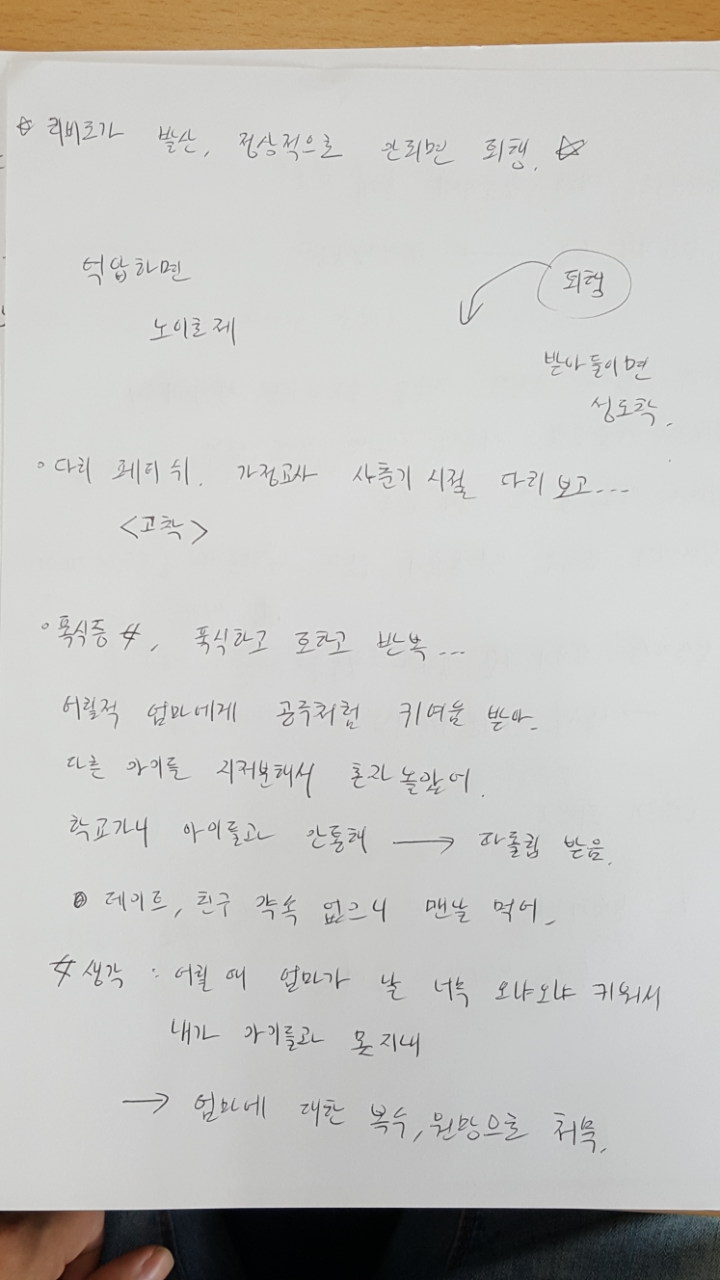 ☆ 리비도가 발산, 정상적으로 안되면 퇴행. ☆
억압하면
노이로제
퇴행
받아들이면
성도착.
◦ 다리 페티쉬. 가정교사 사춘기 시절 다리 보고...
<고착>
◦ 폭식증 ☆, 폭식하고 토하고 반복...
어릴적 엄마에게 공주처럼 귀여움 받아.
다른 아이들 지저분해서 혼자 놀았어.
학교가니 아이들과 안통해 → 따돌림 받음.
데이트, 친구 약속 없으니 맨날 먹어.
☆ 생각 : 어릴 때 엄마가 날 너무 오냐오냐 키워서
내가 아이들과 못지내
→ 엄마에 대한 복수, 원망으로